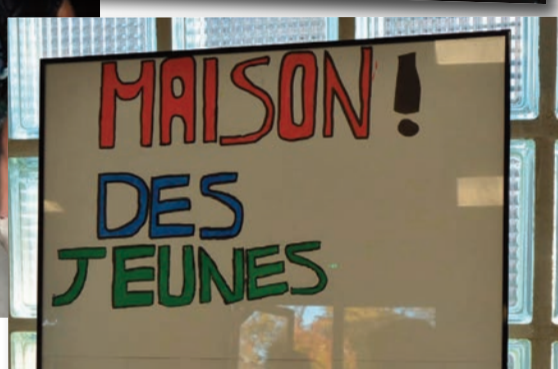 MAISON!
DES
JEUNES